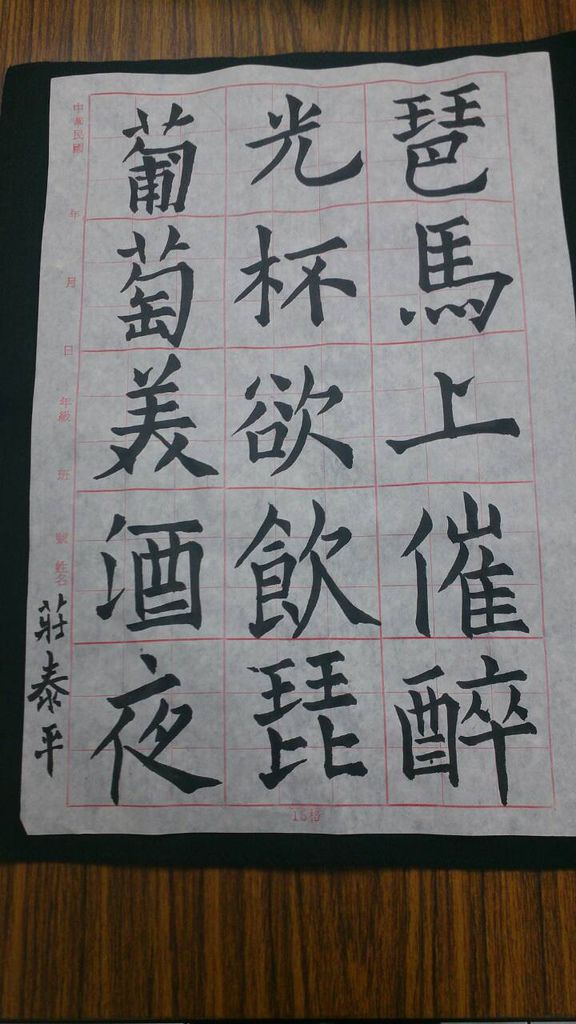 中華民國 年 月 日 年級 班 號 姓名 莊泰平
葡萄美酒夜
光杯欲飲琵
琶馬上催醉
15格